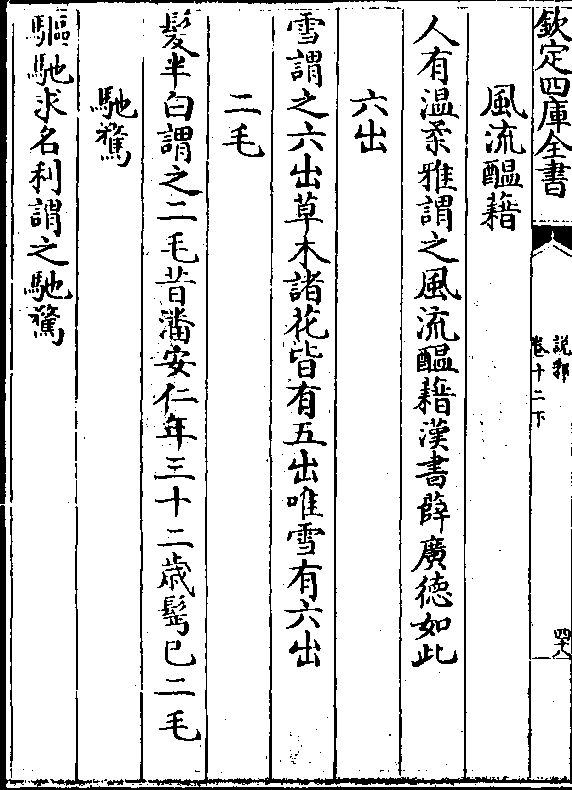 欽定四庫全書
說郛
卷十二下
四十八
風流醖藉
人有温柔雅謂之風流醖藉漢書薛廣德如此
六出
雪謂之六出草木諸花皆有五出唯雪有六出
二毛
髮半白謂之二毛昔潘安仁年三十二歳髩已二毛
馳騖
驅馳求名利謂之馳騖